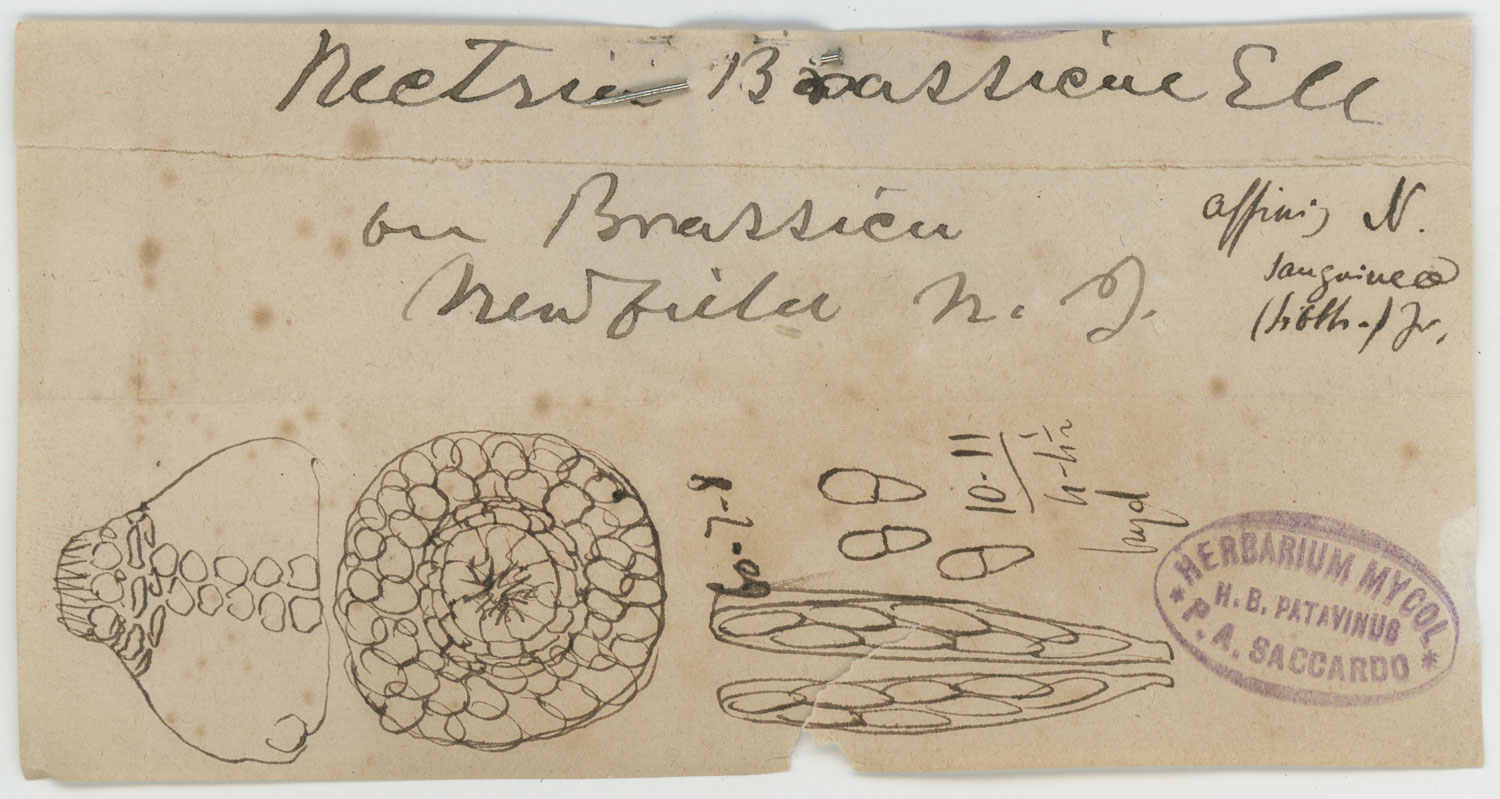 Nectria Brassicae Ell
on Brassica
Newfield N. J.
affinis N.
sanguineae
(Sibth.) Fr.
60-7-8
10-11
HERBARIUM MYCOL
H. B. PATAVINUS
* P. A. SACCARDO *